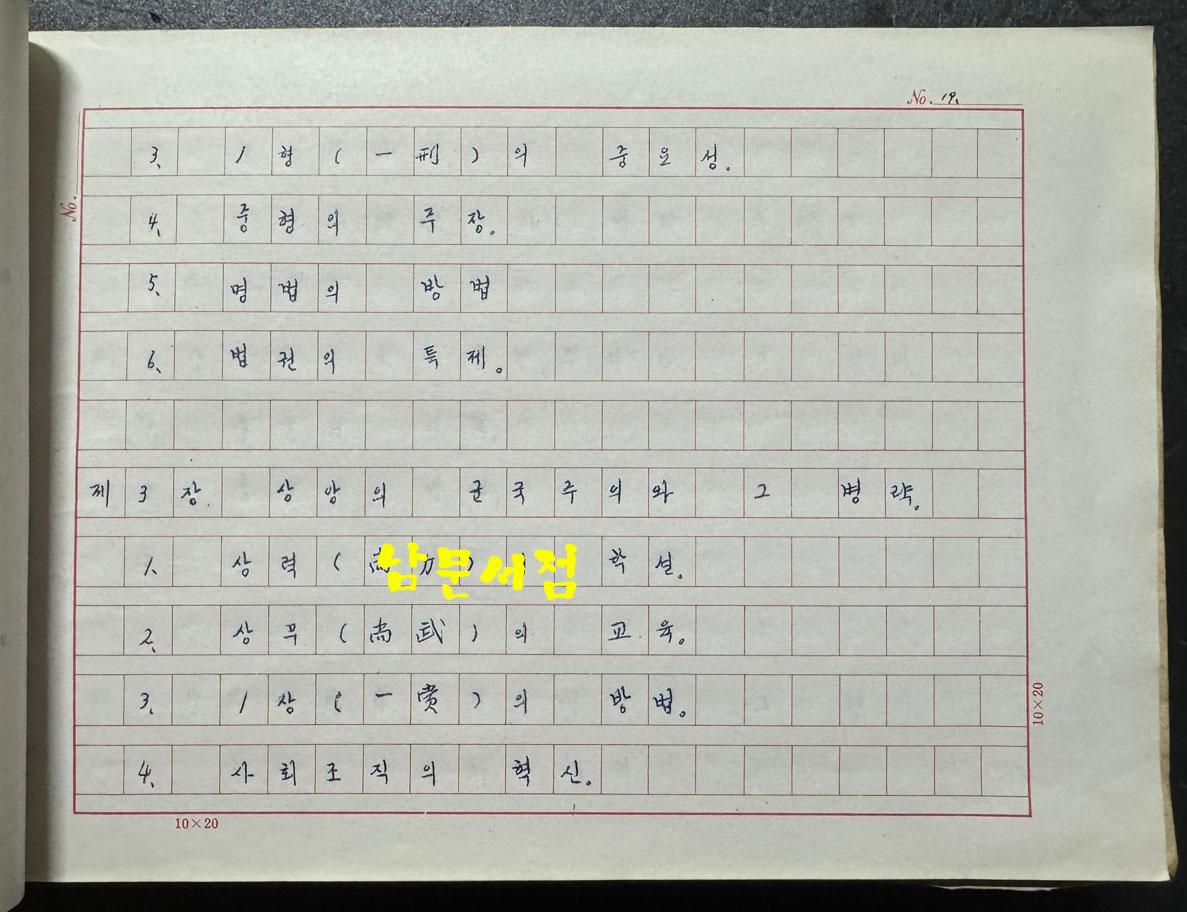 No. 19.
No.
3. 1형(一刑)의 중요성.
4. 중형의 주장.
5. 명법의 방법
6. 법권의 특제.
제3장. 상앙의 군국주의와 그 병략.
1. 상력(尚力) 학설.
남문서점
2. 상무(尚武)의 교육.
3. 1상(一赏)의 방법.
4. 사회조직의 혁신.
10×20
10×20